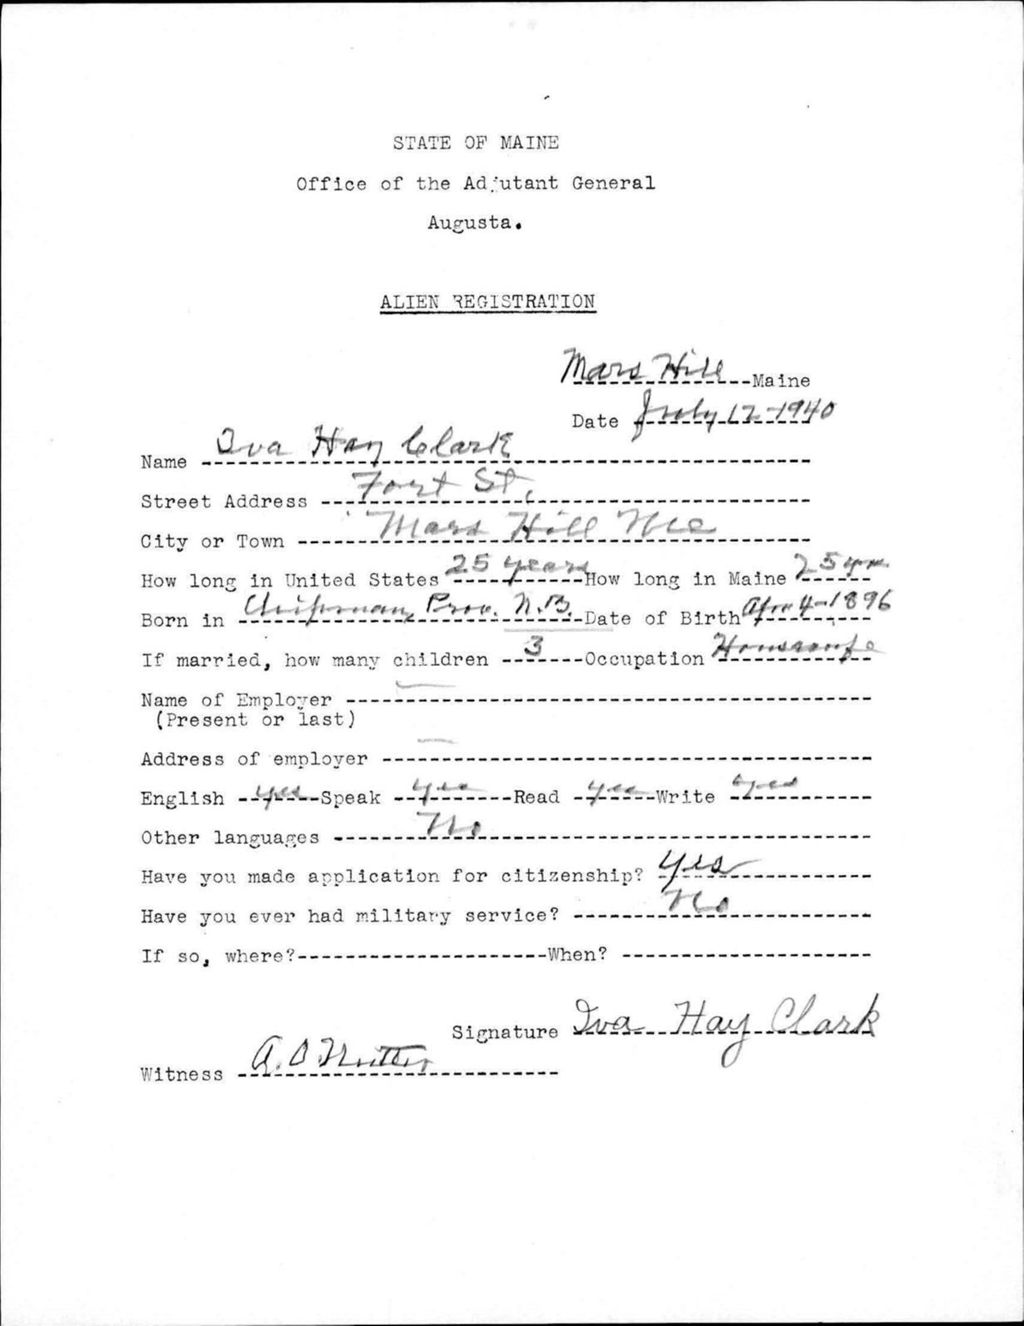 STATE OF MAINE
Office of the Adjutant General
Augusta.
ALIEN REGISTRATION
Mars Hill Maine
Date July 12-1940
Name Iva Hay Clark
Street Address Fort St.
City or Town Mars Hill Me
How long in United States 25 years How long in Maine 25 yrs
Born in Chipman, Prov. N.B. Date of Birth Apr 4-1896
If married, how many children 3 Occupation Housewife
Name of Employer
(Present or last)
Address of employer
English yes Speak yes Read yes Write yes
Other languages No
Have you made application for citizenship? Yes
Have you ever had military service? No
If so, where? When?
Signature Iva Hay Clark
Witness A. O. Nutter